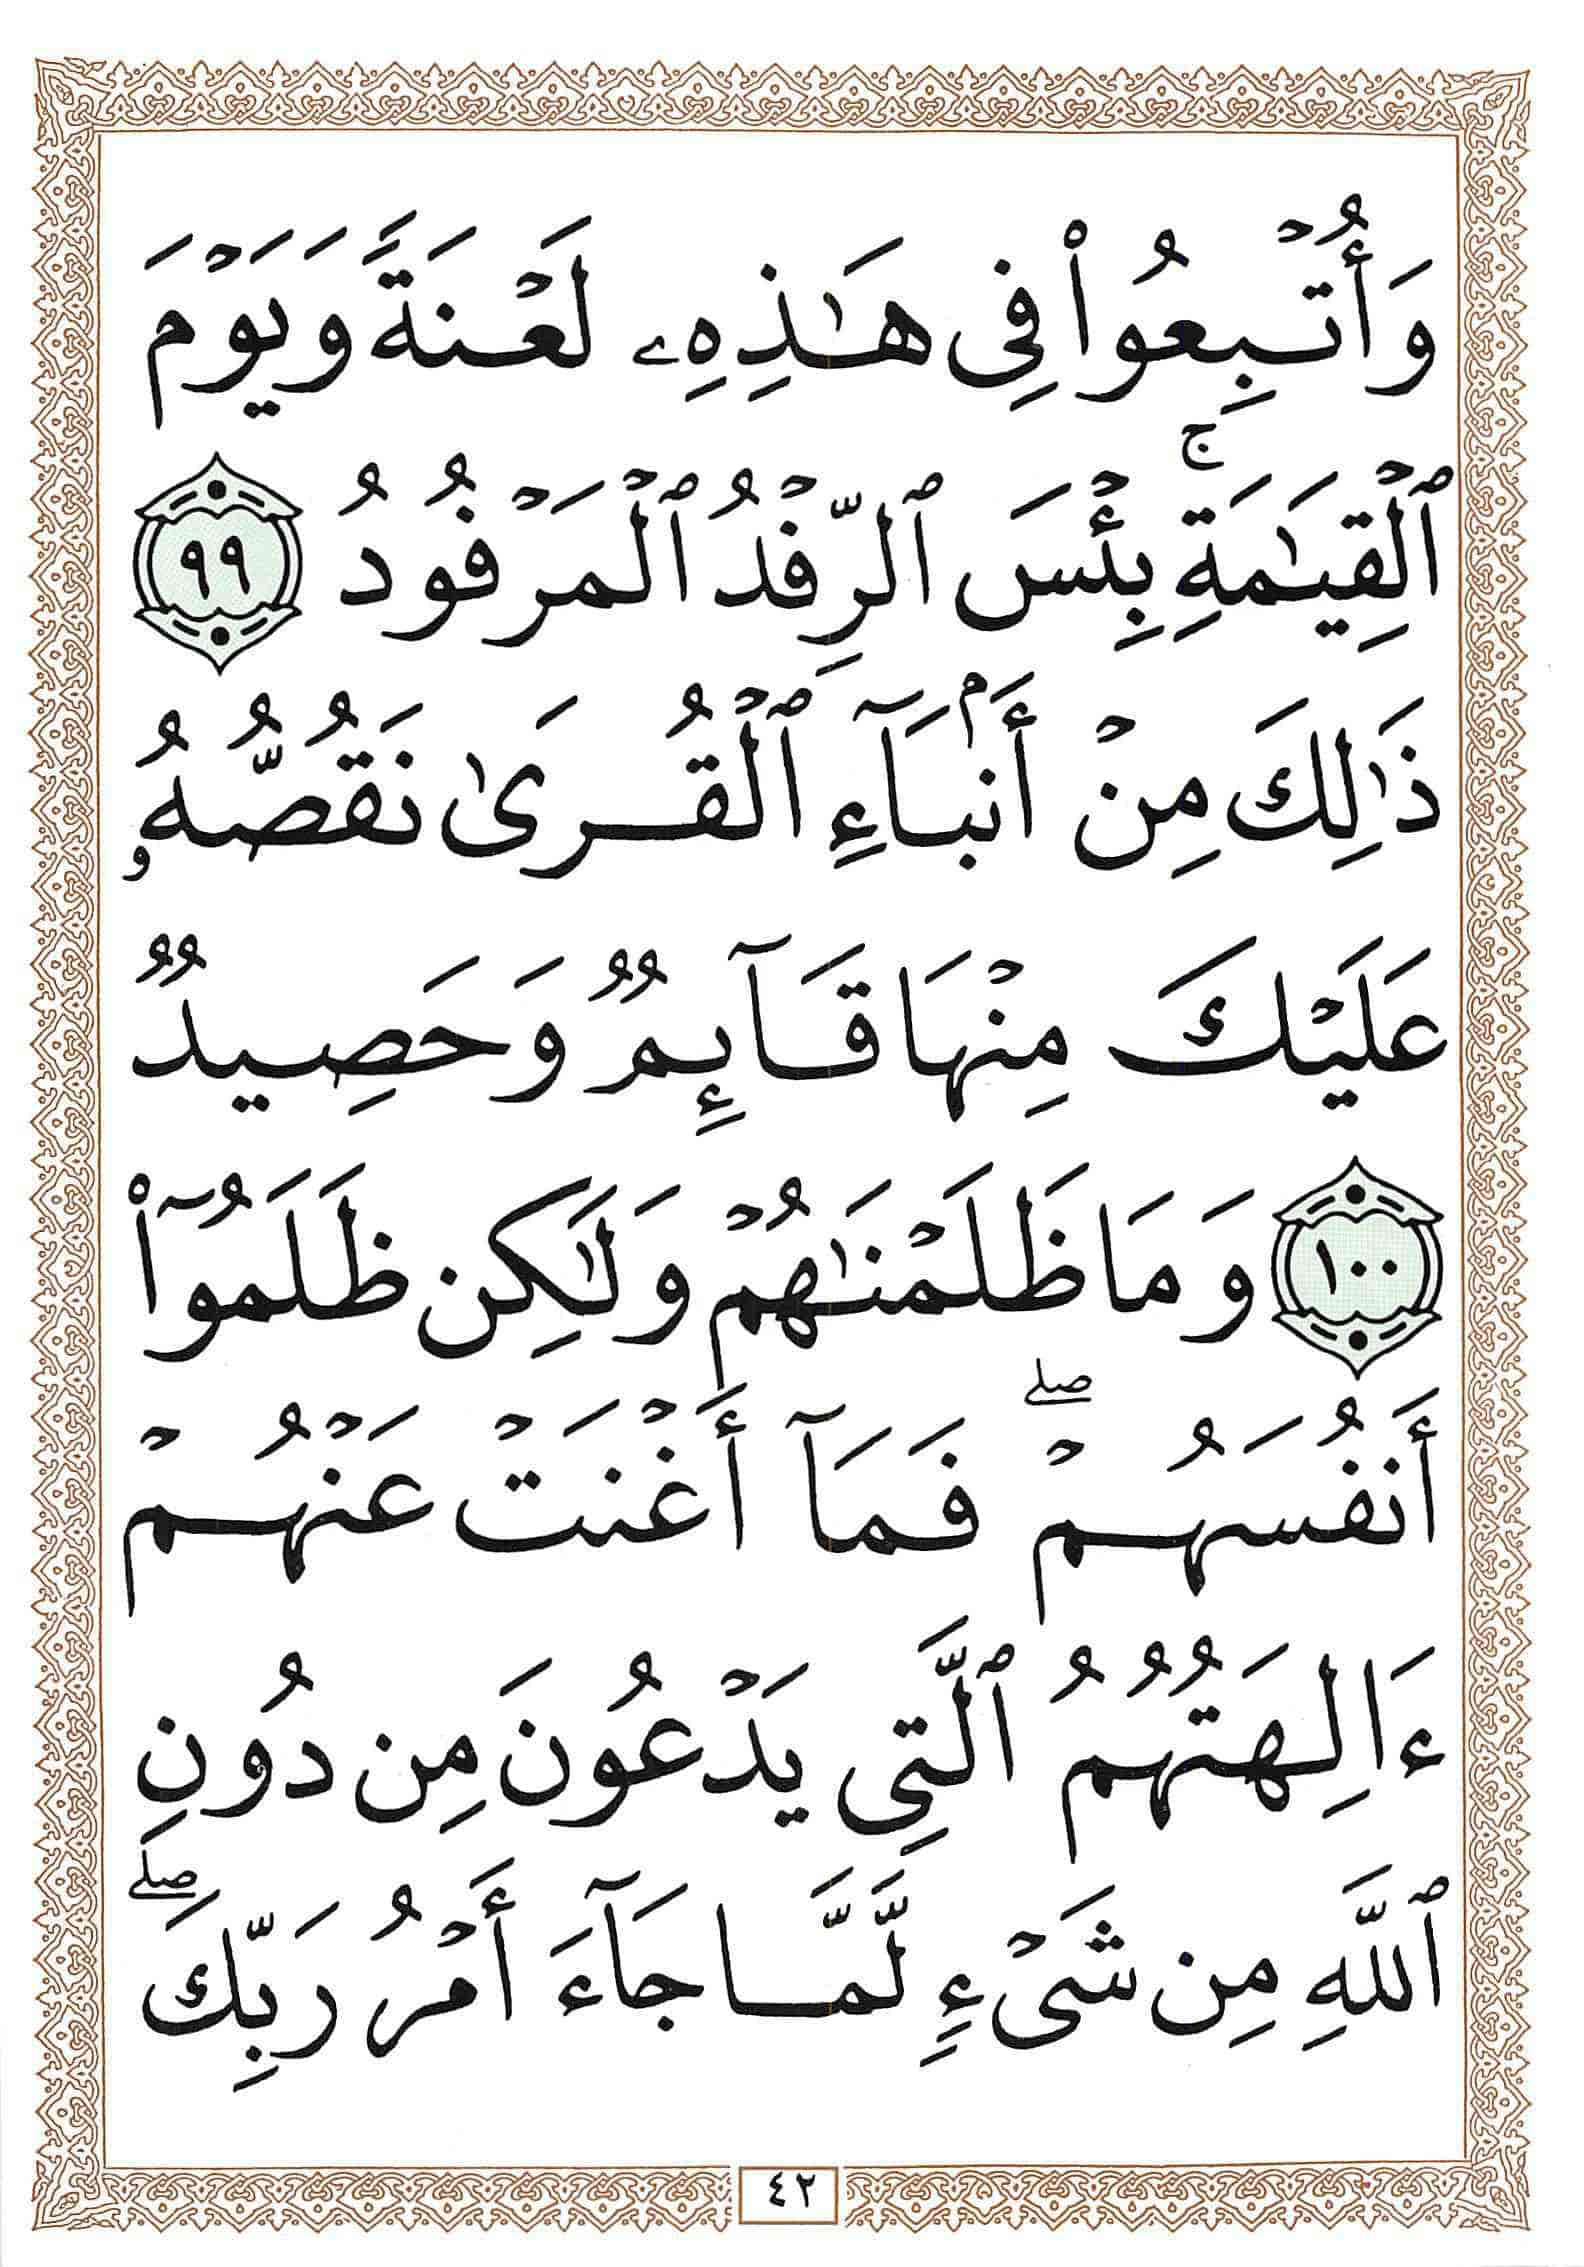 وَأُتۡبِعُواْ فِي هَٰذِهِۦ لَعۡنَةٗ وَيَوۡمَ
ٱلۡقِيَٰمَةِۚ بِئۡسَ ٱلرِّفۡدُ ٱلۡمَرۡفُودُ ٩٩
ذَٰلِكَ مِنۡ أَنۢبَآءِ ٱلۡقُرَىٰ نَقُصُّهُۥ
عَلَيۡكَ مِنۡهَا قَآئِمٞ وَحَصِيدٞ
١٠٠ وَمَا ظَلَمۡنَٰهُمۡ وَلَٰكِن ظَلَمُوٓاْ
أَنفُسَهُمۡۖ فَمَآ أَغۡنَتۡ عَنۡهُمۡ
ءَالِهَتُهُمُ ٱلَّتِي يَدۡعُونَ مِن دُونِ
ٱللَّهِ مِن شَيۡءٖ لَّمَّا جَآءَ أَمۡرُ رَبِّكَۖ
٤٢